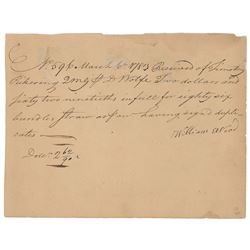 No. 596 March 6th 1783 Received of Timothy
Pickering QMG p D Wolfe Two dollars and
sixty two ninetieths in full for eighty six
bundles straw as per — having signed dupli-
cates —
William
Dolrs 2 62/90